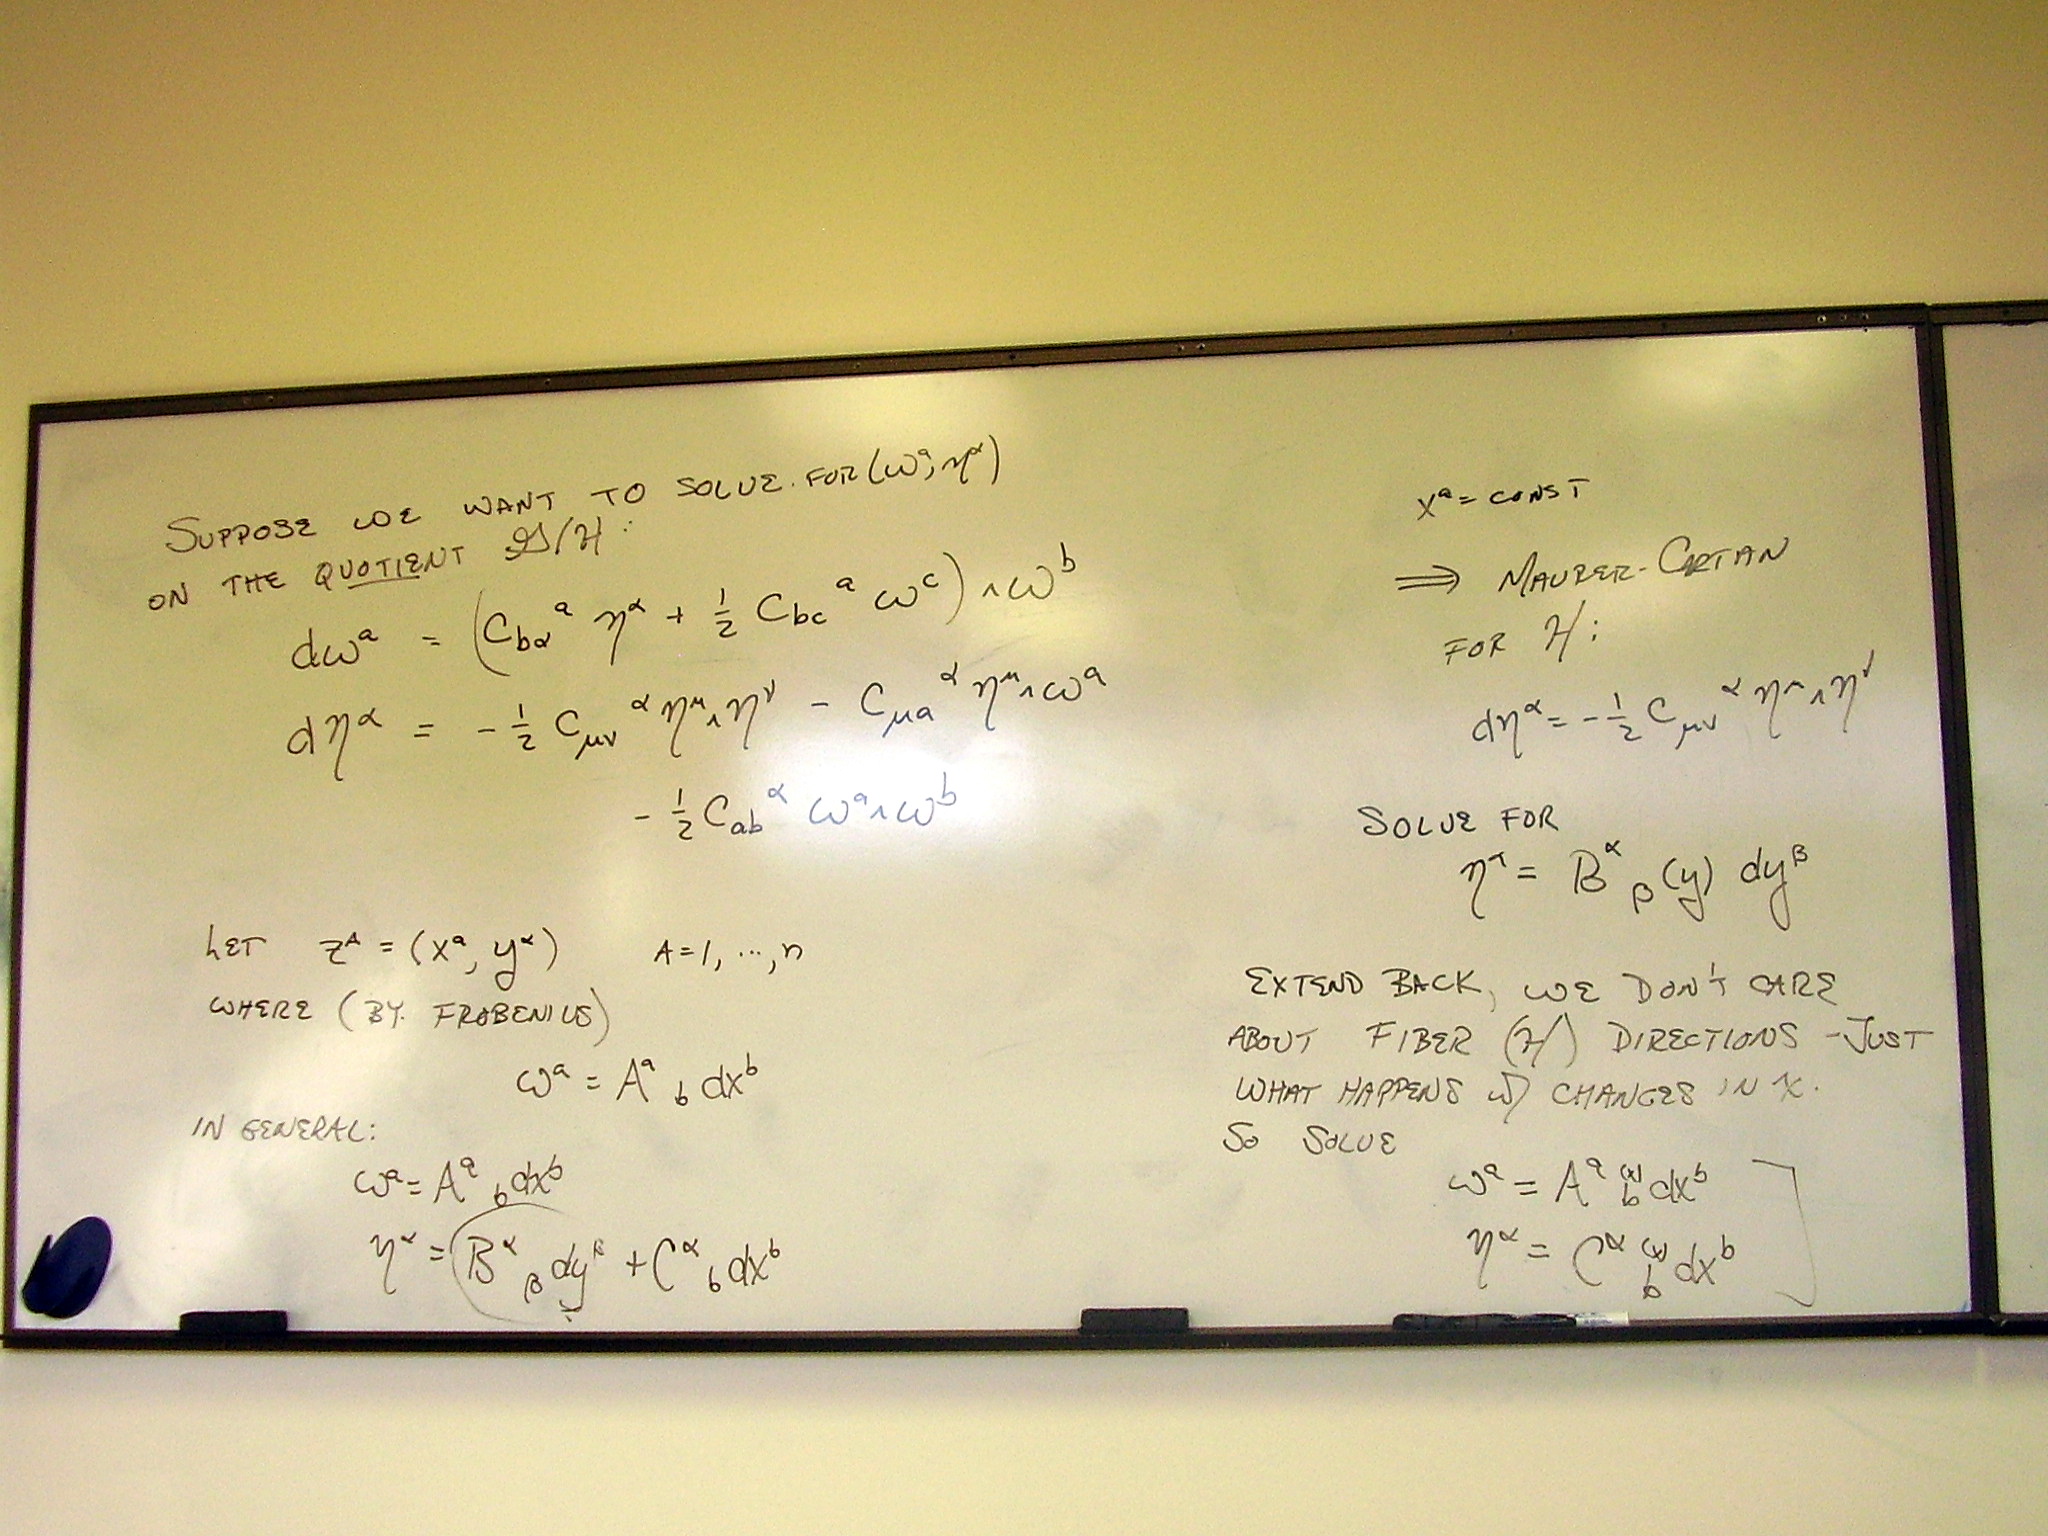 SUPPOSE WE WANT TO SOLVE FOR (ωᵃ, ηᵅ)
ON THE QUOTIENT 𝒢/ℋ:
dωᵃ = (C_{bα}^a η^α + ½ C_{bc}^a ω^c) ∧ ω^b
dη^α = -½ C_{μν}^α η^μ ∧ η^ν - C_{μa}^α η^μ ∧ ω^a
- ½ C_{ab}^α ω^a ∧ ω^b
LET z^A = (x^a, y^α) A = 1, ..., n
WHERE (BY FROBENIUS)
ω^a = A^a_b dx^b
IN GENERAL:
ω^a = A^a_b dx^b
η^α = B^α_β dy^β + C^α_b dx^b
x^a = CONST
⇒ MAURER-CARTAN
FOR ℋ:
dη^α = -½ C_{μν}^α η^μ ∧ η^ν
SOLVE FOR
η^α = B^α_β (y) dy^β
EXTEND BACK, WE DON'T CARE
ABOUT FIBER (ℋ) DIRECTIONS - JUST
WHAT HAPPENS W/ CHANGES IN X.
SO SOLVE
ω^a = A^a_b (x) dx^b
η^α = C^α_b (x) dx^b